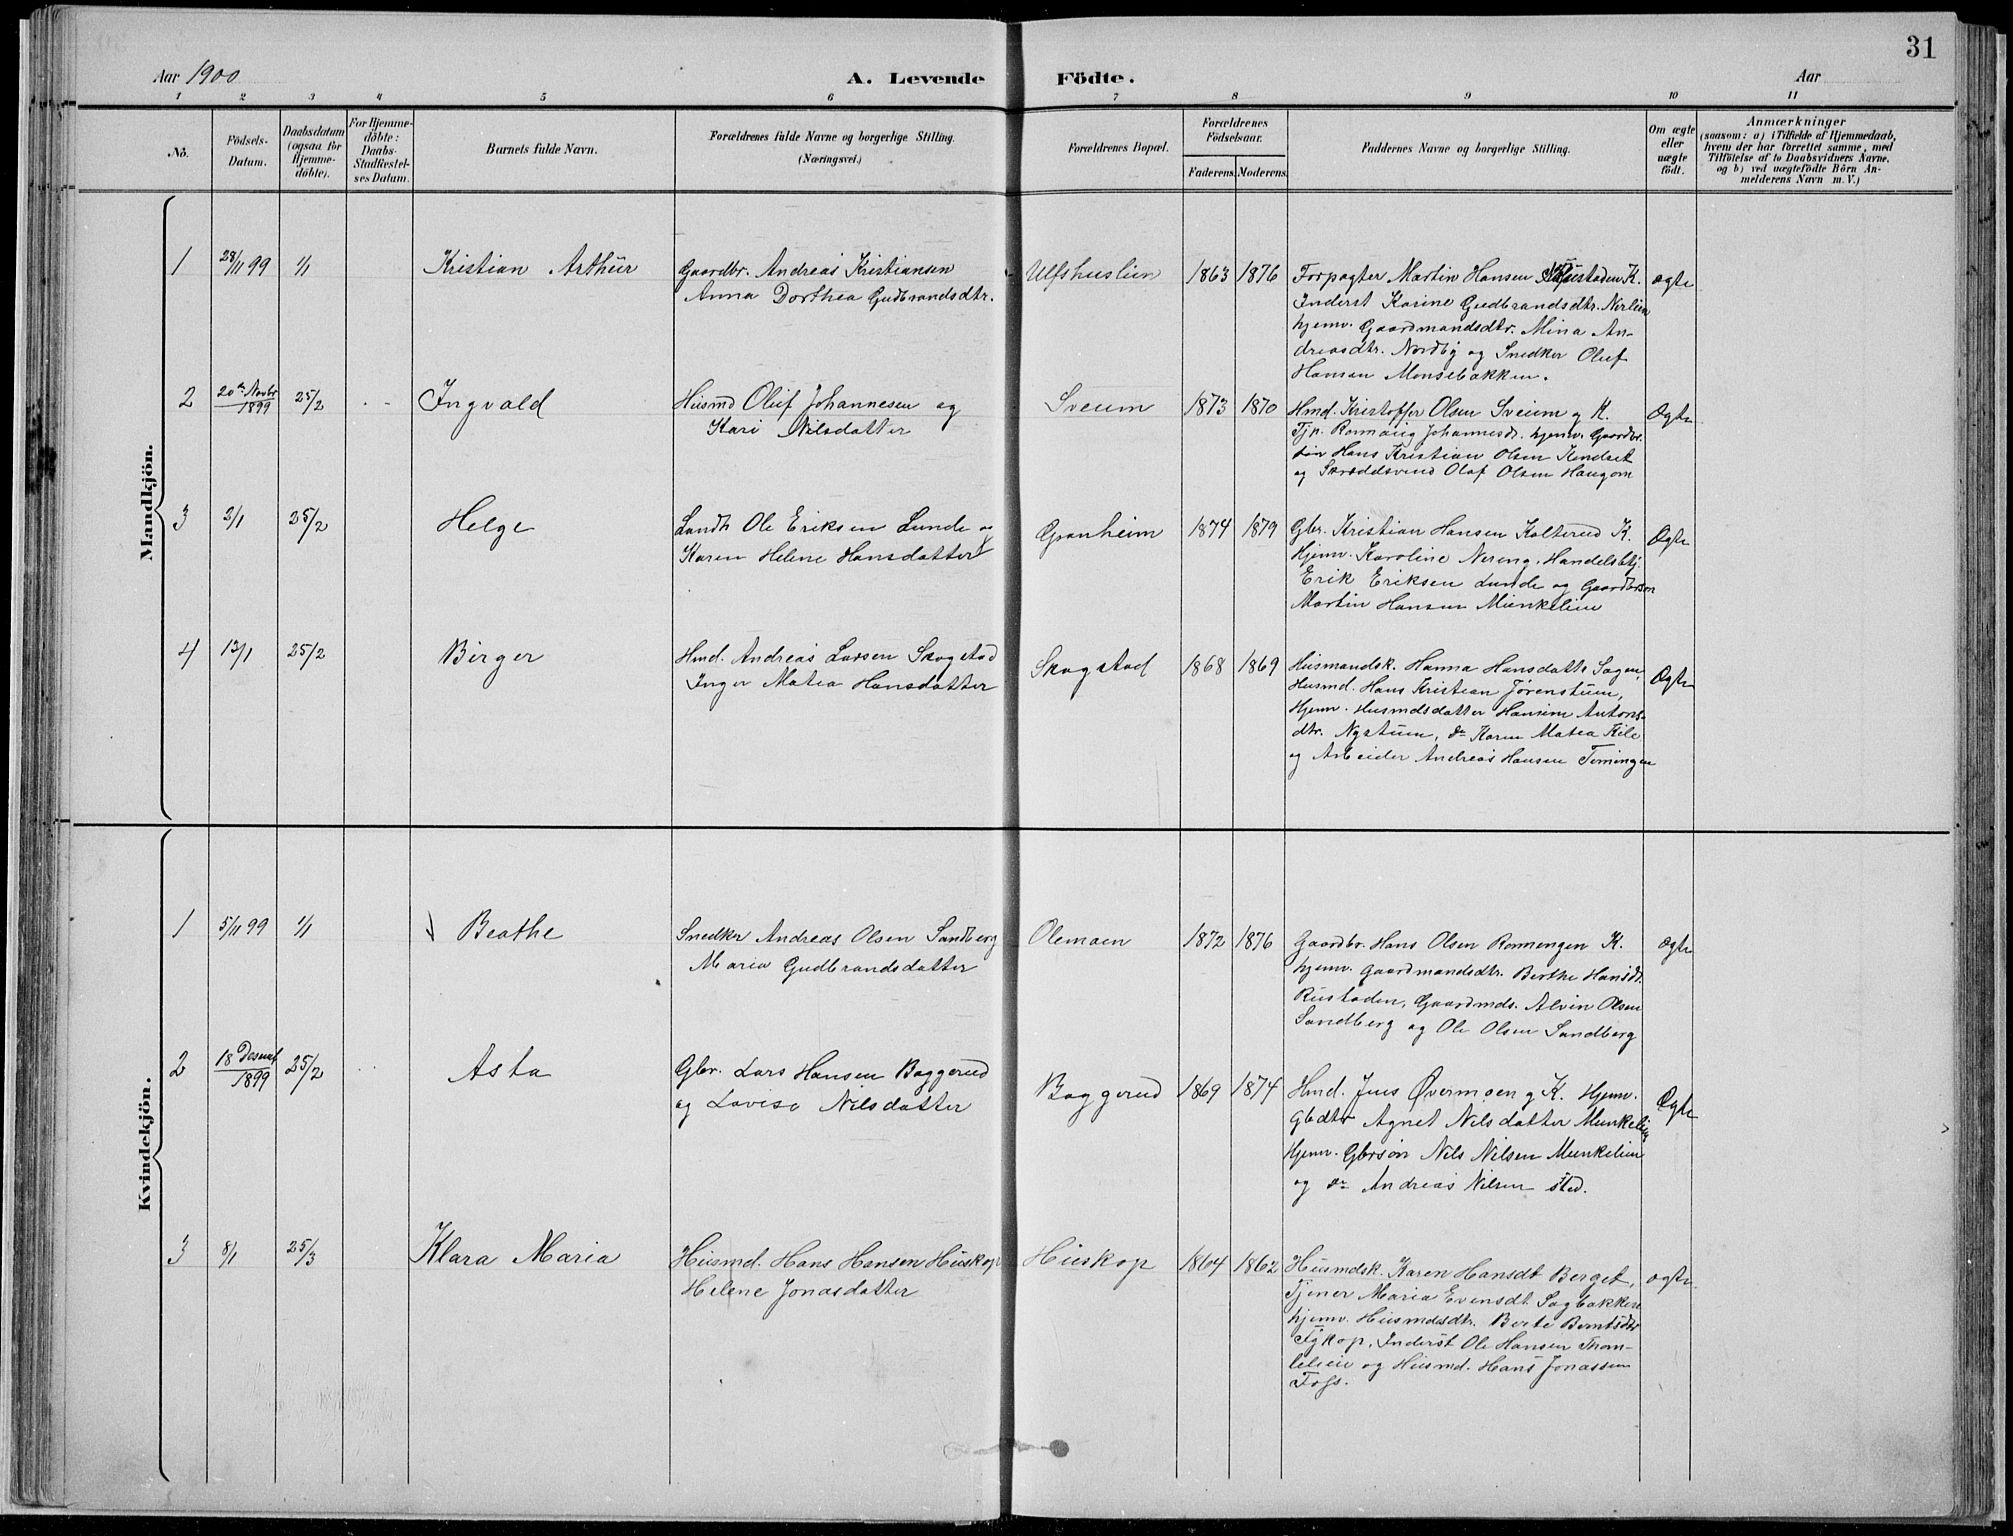 31
Aar 1900
A. Levende Födte.
Aar
1 2 3 4 5 6 7 8 9 10 11
No.
Födsels-
Datum.
Daabsdatum
(ogsaa for
Hjemme-
döbte).
For Hjemme-
döbte:
Daabs-
Stadfestel-
ses Datum.
Barnets fulde Navn.
Forældrenes fulde Navne og borgerlige Stilling.
(Næringsvei.)
Forældrenes Bopæl.
Forældrenes
Födselsaar.
Faderens. Moderens.
Faddernes Navne og borgerlige Stilling.
Om ægte
eller
uægte
födt.
Anmærkninger
(saasom: a) i Tilfælde af Hjemmedaab,
hvem der har forrettet samme, med
Tilföielse af to Daabsvidners Navne.
og b) ved uægtefödte Börn An-
melderens Navn m. V.)
Mandkjön.
1 28/11 99 1/1 Kristian Arthur
Gaardbr. Andreas Kristiansen
Anna Dorthea Gudbrandsdtr.
Ulfshuslien 1863 1876
Forpagter Martin Hansen Rustaden K.
Inderst Karine Gudbrandsdtr. Nerlien
hjemv. Gaardmandsdtr. Mina An-
dreasdtr. Nordby og Snedker Oluf
Hansen Monsebakken.
ægte
2 20de Novbr/1899 25/2 - - Ingvald
Husmd Oluf Johannesen og
Kari Nilsdatter
Sveum 1873 1870
Hmd. Kristoffer Olsen Sveum og K.
Tjp. Ronnaug Johannesdt. hjemv. Gaardbr.
søn Hans Kristian Olsen Kendset
og Skræddsvend Olaf Olsen Haugom
Ægte
3 2/1 25/2 Helge
Landh. Ole Eriksen Lunde og
Karen Helene Hansdatter
Granheim 1874 1879
Gbr. Kristian Hansen Kolterud K.
Hjemv. Karoline Nereng. Handelsbtj.
Erik Eriksen Lunde og Gaardbrsøn
Martin Hansen Munkelien
Ægte
4 13/1 25/2 Birger
Hmd. Andreas Larsen Skogstad
Inger Matea Hansdatter
Skogstad 1868 1869
Husmandsk. Hanna Hansdattr Sagen,
Husmd. Hans Kristian Jørenstuen,
Hjemv. Husmdsdatter Hansine Antons-
dtr. Nystuen, do Karen Matea Kile
og Arbeider Andreas Hansen
Ægte
Kvindekjön.
1 5/11 99 1/1 Beathe
Snedker Andreas Olsen Sandberg
Maria Gudbrandsdatter
Olemoen 1872 1876
Gaardbr. Hans Olsen Rønnengen K.
hjemv. gaardmandsdtr. Berthe Hansdt.
Rustaden, Gaardmds. Alvin Olsen
Sandberg og Ole Olsen Sandberg
ægte
2 18 Desmbr/1899 25/2 Asta
Gbr. Lars Hansen Baggerud
og Lovise Nilsdatter
Baggerud 1869 1874
Hmd. Jens Øvermoen og K. Hjemv.
Gbdtr Agnet Nilsdatter Munkelien
Hjemv. Gbrsøn Nils Nilsen Munkelien
og do Andreas Nilsen sted.
Ægte
3 8/1 25/3 Klara Maria
Husmd. Hans Hansen Huskop
Helene Jonasdatter
Huskop 1864 1862
Husmdsk. Karen Hansdt Berget,
Tjener Maria Evensdt. Sagbakken
hjemv. Husmdsdtr. Berte Berntsdtr
Inderst Ole Hansen Trom-
og Husmd. Hans Jonassen
Foss.
ægte